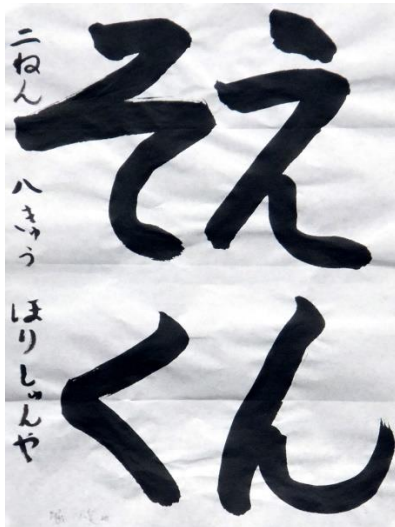 えん
そく
二ねん 八きゅう ほりしゅんや